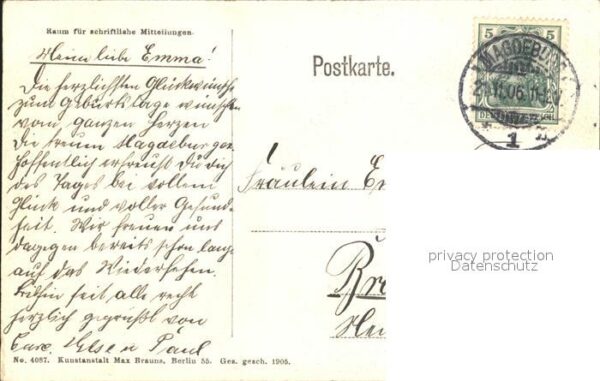 Raum für schriftliche Mitteilungen.
Meine liebe Emma!
Die herzlichsten Glückwünsche
zum Geburtstage wünschen
von ganzem Herzen
Die treuen Magdeburger.
Hoffentlich erfreust Du dich
des Tages bei vollem
Glück und voller Gesund-
heit. Wir freuen uns
dagegen bereits schon lange
auf das Wiedersehen.
seit, alle recht
herzlich gegrüßt von
Eure Else u Paul
No. 4087. Kunstanstalt Max Brauns, Berlin 55. Ges. gesch. 1905.
Postkarte.
5 5
MAGDEBURG
1
Fräulein Em
Br
privacy protection
Datenschutz